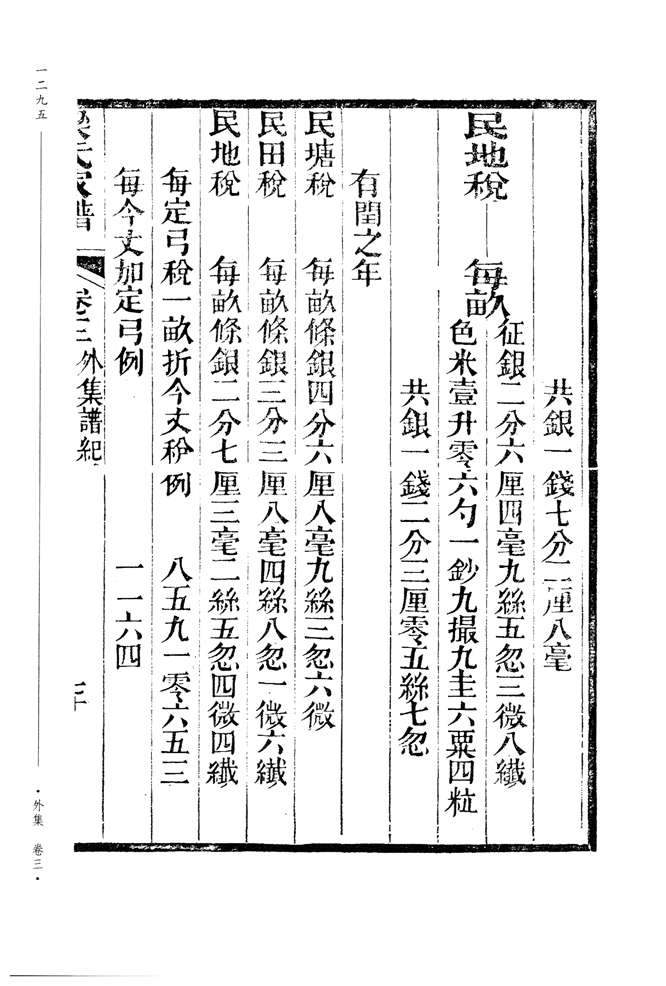 共銀一錢七分二厘八毫
民地稅 每畝
征銀二分六厘四毫九絲五忽三微八纖
色米壹升零六勺一鈔九撮九圭六粟四粒
共銀一錢二分三厘零五絲七忽
有閏之年
民塘稅 每畝條銀四分六厘八毫九絲三忽六微
民田稅 每畝條銀三分三厘八毫四絲八忽一微六纖
民地稅 每畝條銀二分七厘三毫二絲五忽四微四纖
每定弓稅一畝折今丈稅例 八五九一零六五三
每今丈加定弓例 一一六四
家譜 卷三 外集譜紀
一二九五
·外集 卷三·